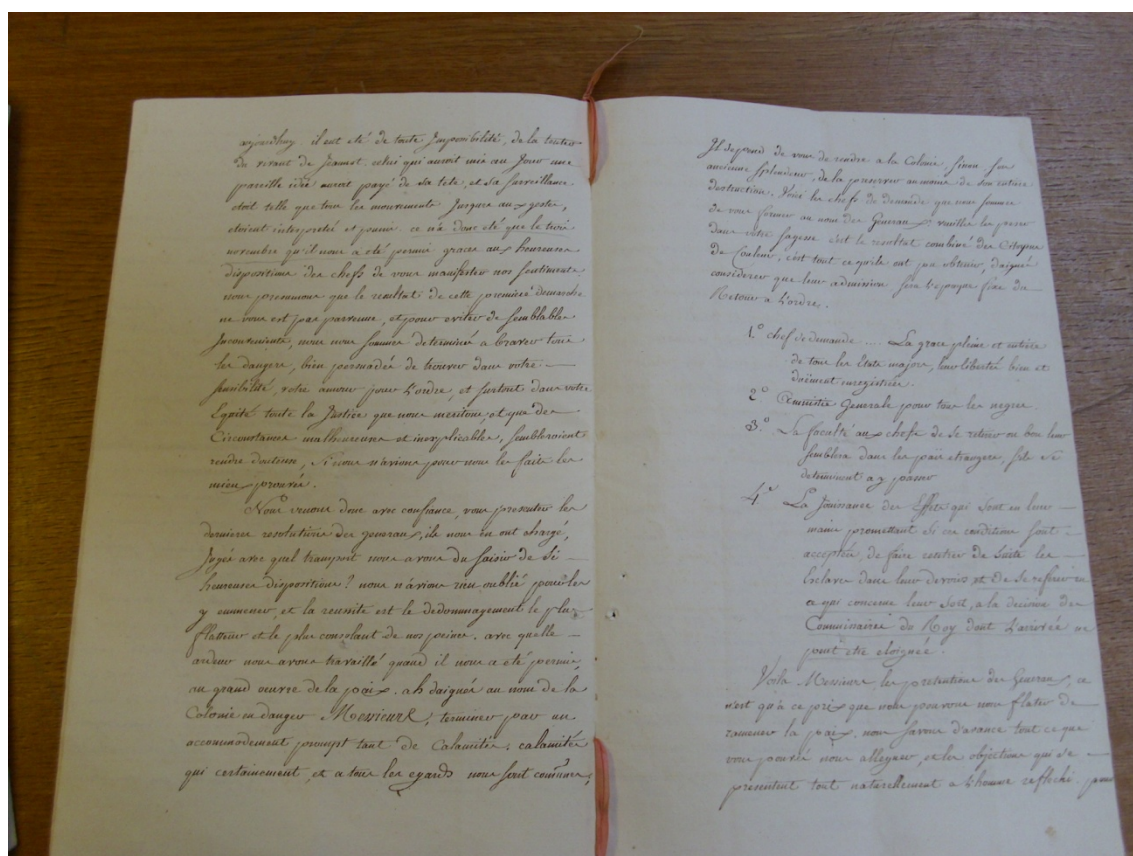 aujourdhuy il eut eté de toute Impossibilité, de la tenter
du vivant de Jeannot. celui qui auroit mis au Jour une
pareille idée auroit payé de sa tete, et sa surveillance
etoit telle que tous les mouvements Jusques aux gestes,
etoient interpretés et punis. ce n'a donc eté que le trois
novembre qu'il nous a eté permis graces aux heureuses
dispositions des chefs de vous manifester nos sentiments
nous presumons que le resultat de cette premiere demarche
ne vous est pas parvenue, et pour eviter de semblables
Inconvenients, nous nous sommes determinés a braver tous
les dangers, bien persuadés de trouver dans votre
sensibilité, votre amour pour L'ordre, et surtout dans votre
Equité toute la Justice que nous meritons et que des
Circonstances malheureuses et inexplicables, sembleroient
rendre douteuse, si nous n'avions pour nous les faits les
mieux prouvés.
Nous venons donc avec confiance, vous presenter les
dernieres resolutions des generaux, ils nous en ont chargé,
Jugés avec quel transport nous avons du saisir de si
heureuses dispositions? nous n'avions rien oublié pour les
y emmener, et la reussite est le dedommagement le plus
flatteur et le plus consolant de nos peines. avec quelle
ardeur nous avons travaillé quand il nous a eté permis,
au grand œuvre de la paix. ah daignés au nom de la
Colonie en danger Messieurs, terminer par un
accommodement prompt tant de Calamités; calamités
qui certainement, et a tous les egards nous sont comunes,
Il depend de vous de rendre a la Colonie, sinon son
ancienne splendeur, de la preserver aumoins de son entiere
destruction. Voici les chefs de demande que nous sommes
de vous former au nom des Generaux: veuillez les peser
dans votre sagesse c'est le resultat combiné des Citoyens
de Couleur, c'est tout ce qu'ils ont pu obtenir, daignés
considerer que leur admission sera l'epoque fixe du
Retour a L'ordre.
1.º chef de demande .... La grace pleine et entiere
de tous les Etats major, leur liberté bien et
duëment enregistrée.
2.º Amnistie Generale pour tous les negres
3.º La faculté aux chefs de se retirer ou bon leur
semblera dans les pais etrangers, s'ils se
determinent a y passer
4.º La Jouissance des Effets qui sont en leurs
mains promettant si ces conditions sont
acceptées, de faire rentrer de suite les
Esclaves dans leur devoirs et de se referer en
ce qui concerne leur sort, a la decision des
Commissaires du Roy dont L'arrivée ne
peut etre eloignée.
Voila Messieurs, les pretentions des Generaux, ce
n'est qu'à ce prix que nous pouvons nous flater de
ramener la paix, nous savons d'avance tout ce que
vous pourés nous alleguer, et les objections qui se
presentent tout naturellement a L'homme reflechi. pour